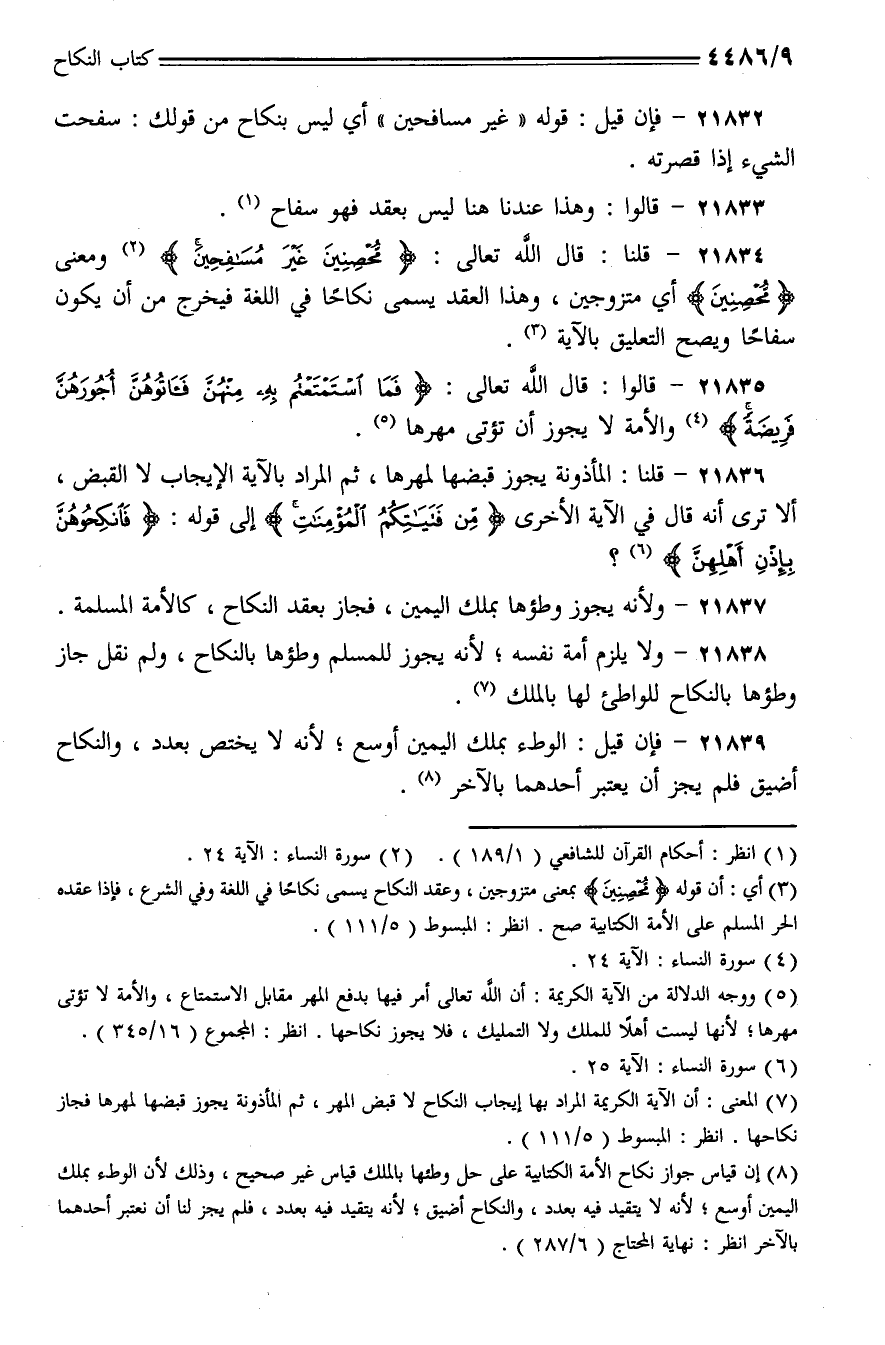 ٤٤٨٦/٩ كتاب النكاح
٢١٨٣٢ - فإن قيل : قوله « غير مسافحين » أي ليس بنكاح من قولك : سفحت
الشيء إذا قصرته .
٢١٨٣٣ - قالوا : وهذا عندنا هنا ليس بعقد فهو سفاح (١) .
٢١٨٣٤ - قلنا : قال اللَّه تعالى : ﴿ تُحْصِنِينَ غَيْرَ مُسَٰفِحِينَۚ ﴾ (٢) ومعنى
﴿ تُحْصِنِينَ ﴾ أي متزوجين ، وهذا العقد يسمى نكاحًا في اللغة فيخرج من أن يكون
سفاحًا ويصح التعليق بالآية (٣) .
٢١٨٣٥ - قالوا : قال اللَّه تعالى : ﴿ فَمَا ٱسْتَمْتَعْتُم بِهِۦ مِنْهُنَّ فَـَٔاتُوهُنَّ أُجُورَهُنَّ
فَرِيضَةًۚ ﴾ (٤) والأمة لا يجوز أن تؤتى مهرها (٥) .
٢١٨٣٦ - قلنا : المأذونة يجوز قبضها لمهرها ، ثم المراد بالآية الإيجاب لا القبض ،
ألا ترى أنه قال في الآية الأخرى ﴿ مِّن فَتَيَٰتِكُمُ ٱلْمُؤْمِنَٰتِۚ ﴾ إلى قوله : ﴿ فَٱنكِحُوهُنَّ
بِإِذْنِ أَهْلِهِنَّ ﴾ (٦) ؟
٢١٨٣٧ - ولأنه يجوز وطؤها بملك اليمين ، فجاز بعقد النكاح ، كالأمة المسلمة .
٢١٨٣٨ - ولا يلزم أمة نفسه ؛ لأنه يجوز للمسلم وطؤها بالنكاح ، ولم نقل جاز
وطؤها بالنكاح للواطئ لها بالملك (٧) .
٢١٨٣٩ - فإن قيل : الوطء بملك اليمين أوسع ؛ لأنه لا يختص بعدد ، والنكاح
أضيق فلم يجز أن يعتبر أحدهما بالآخر (٨) .
(١) انظر : أحكام القرآن للشافعي ( ١٨٩/١ ) . (٢) سورة النساء : الآية ٢٤ .
(٣) أي : أن قوله ﴿ تُحْصِنِينَ ﴾ بمعنى متزوجين ، وعقد النكاح يسمى نكاحًا في اللغة وفي الشرع ، فإذا عقده
الحر المسلم على الأمة الكتابية صح . انظر : المبسوط ( ١١١/٥ ) .
(٤) سورة النساء : الآية ٢٤ .
(٥) ووجه الدلالة من الآية الكريمة : أن اللَّه تعالى أمر فيها بدفع المهر مقابل الاستمتاع ، والأمة لا تؤتى
مهرها ؛ لأنها ليست أهلًا للملك ولا التمليك ، فلا يجوز نكاحها . انظر : المجموع ( ٣٤٥/١٦ ) .
(٦) سورة النساء : الآية ٢٥ .
(٧) المعنى : أن الآية الكريمة المراد بها إيجاب النكاح لا قبض المهر ، ثم المأذونة يجوز قبضها لمهرها فجاز
نكاحها . انظر : المبسوط ( ١١١/٥ ) .
(٨) إن قياس جواز نكاح الأمة الكتابية على حل وطئها بالملك قياس غير صحيح ، وذلك لأن الوطء بملك
اليمين أوسع ؛ لأنه لا يتقيد فيه بعدد ، والنكاح أضيق ؛ لأنه يتقيد فيه بعدد ، فلم يجز لنا أن نعتبر أحدهما
بالآخر انظر : نهاية المحتاج ( ٢٨٧/٦ ) .